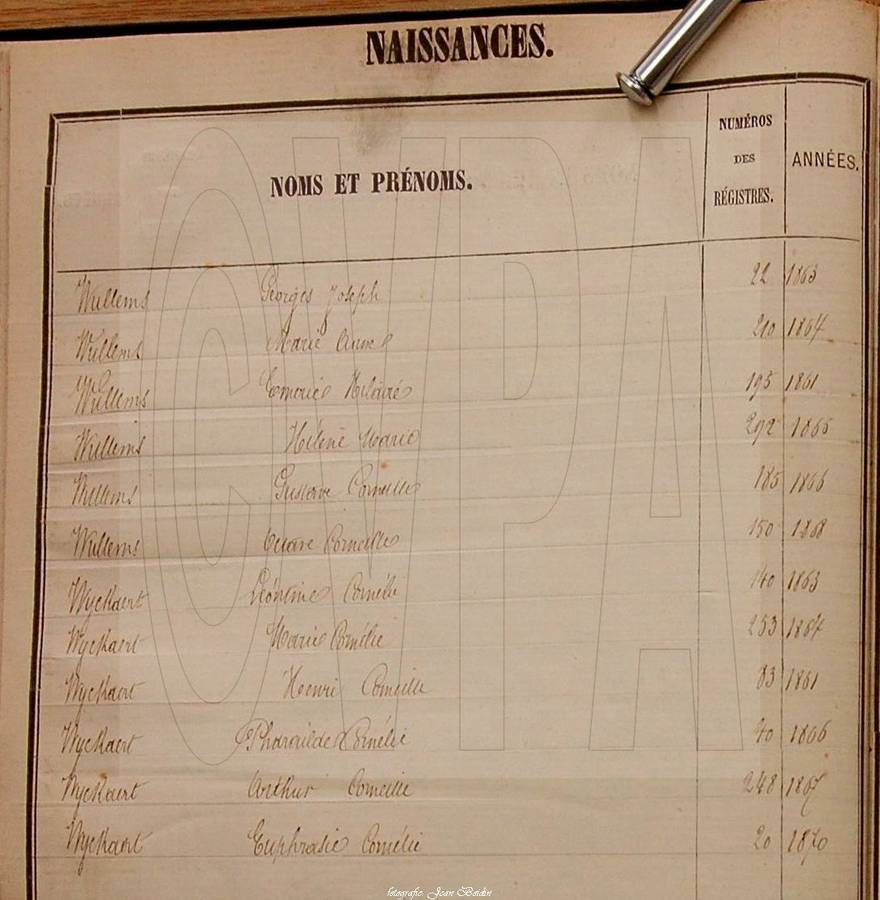 NAISSANCES.
NOMS ET PRÉNOMS. NUMÉROS DES RÉGISTRES. ANNÉES.
Willems Georges Joseph 22 1863
Willems Marie Anne 210 1864
Willems Hilaire 195 1861
Willems Hélène Marie 292 1865
Willems Gustave Corneille 185 1866
Willems Octave Corneille 150 1868
Wyckaert Léontine Cornélie 140 1863
Wyckaert Marie Cornélie 253 1864
Wyckaert Henri Corneille 83 1861
Wyckaert Pharaïlde Cornélie 40 1866
Wyckaert Arthur Corneille 248 1867
Wyckaert Euphrasie Cornélie 20 1870
CVPA
fotografie: Jean Beidin